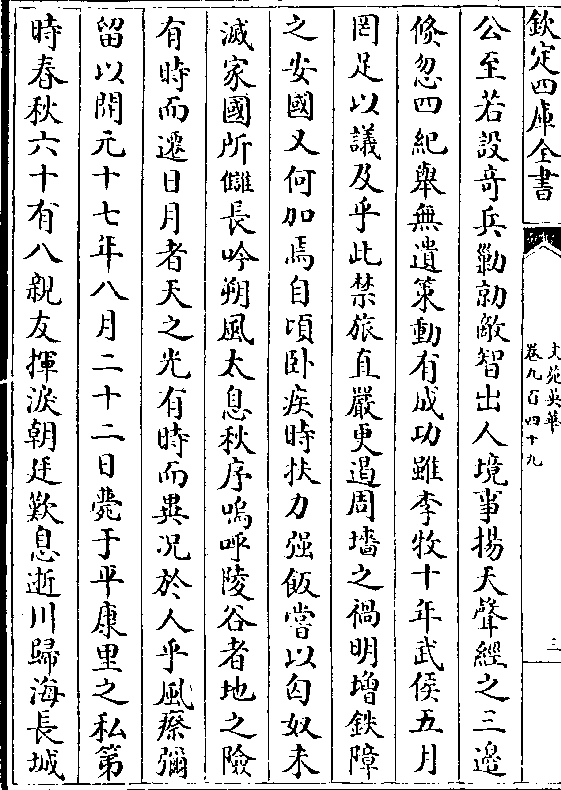 欽定四庫全書
文苑英華
卷九百四十九
三
公至若設奇兵勦勍敵智出人境事揚天聲經之三邊
倐忽四紀舉無遺策動有成功雖李牧十年武侯五月
罔足以議及乎此禁旅直嚴更邊周墻之禍明增鉄障
之安國又何加焉自頃卧疾時扶力强飯嘗以匈奴未
滅家國所讎長吟朔風太息秋序嗚呼陵谷者地之險
有時而遷日月者天之光有時而異况於人乎風瘵彌
留以開元十七年八月二十二日薨于平康里之私第
時春秋六十有八親友揮淚朝廷歎息逝川歸海長城